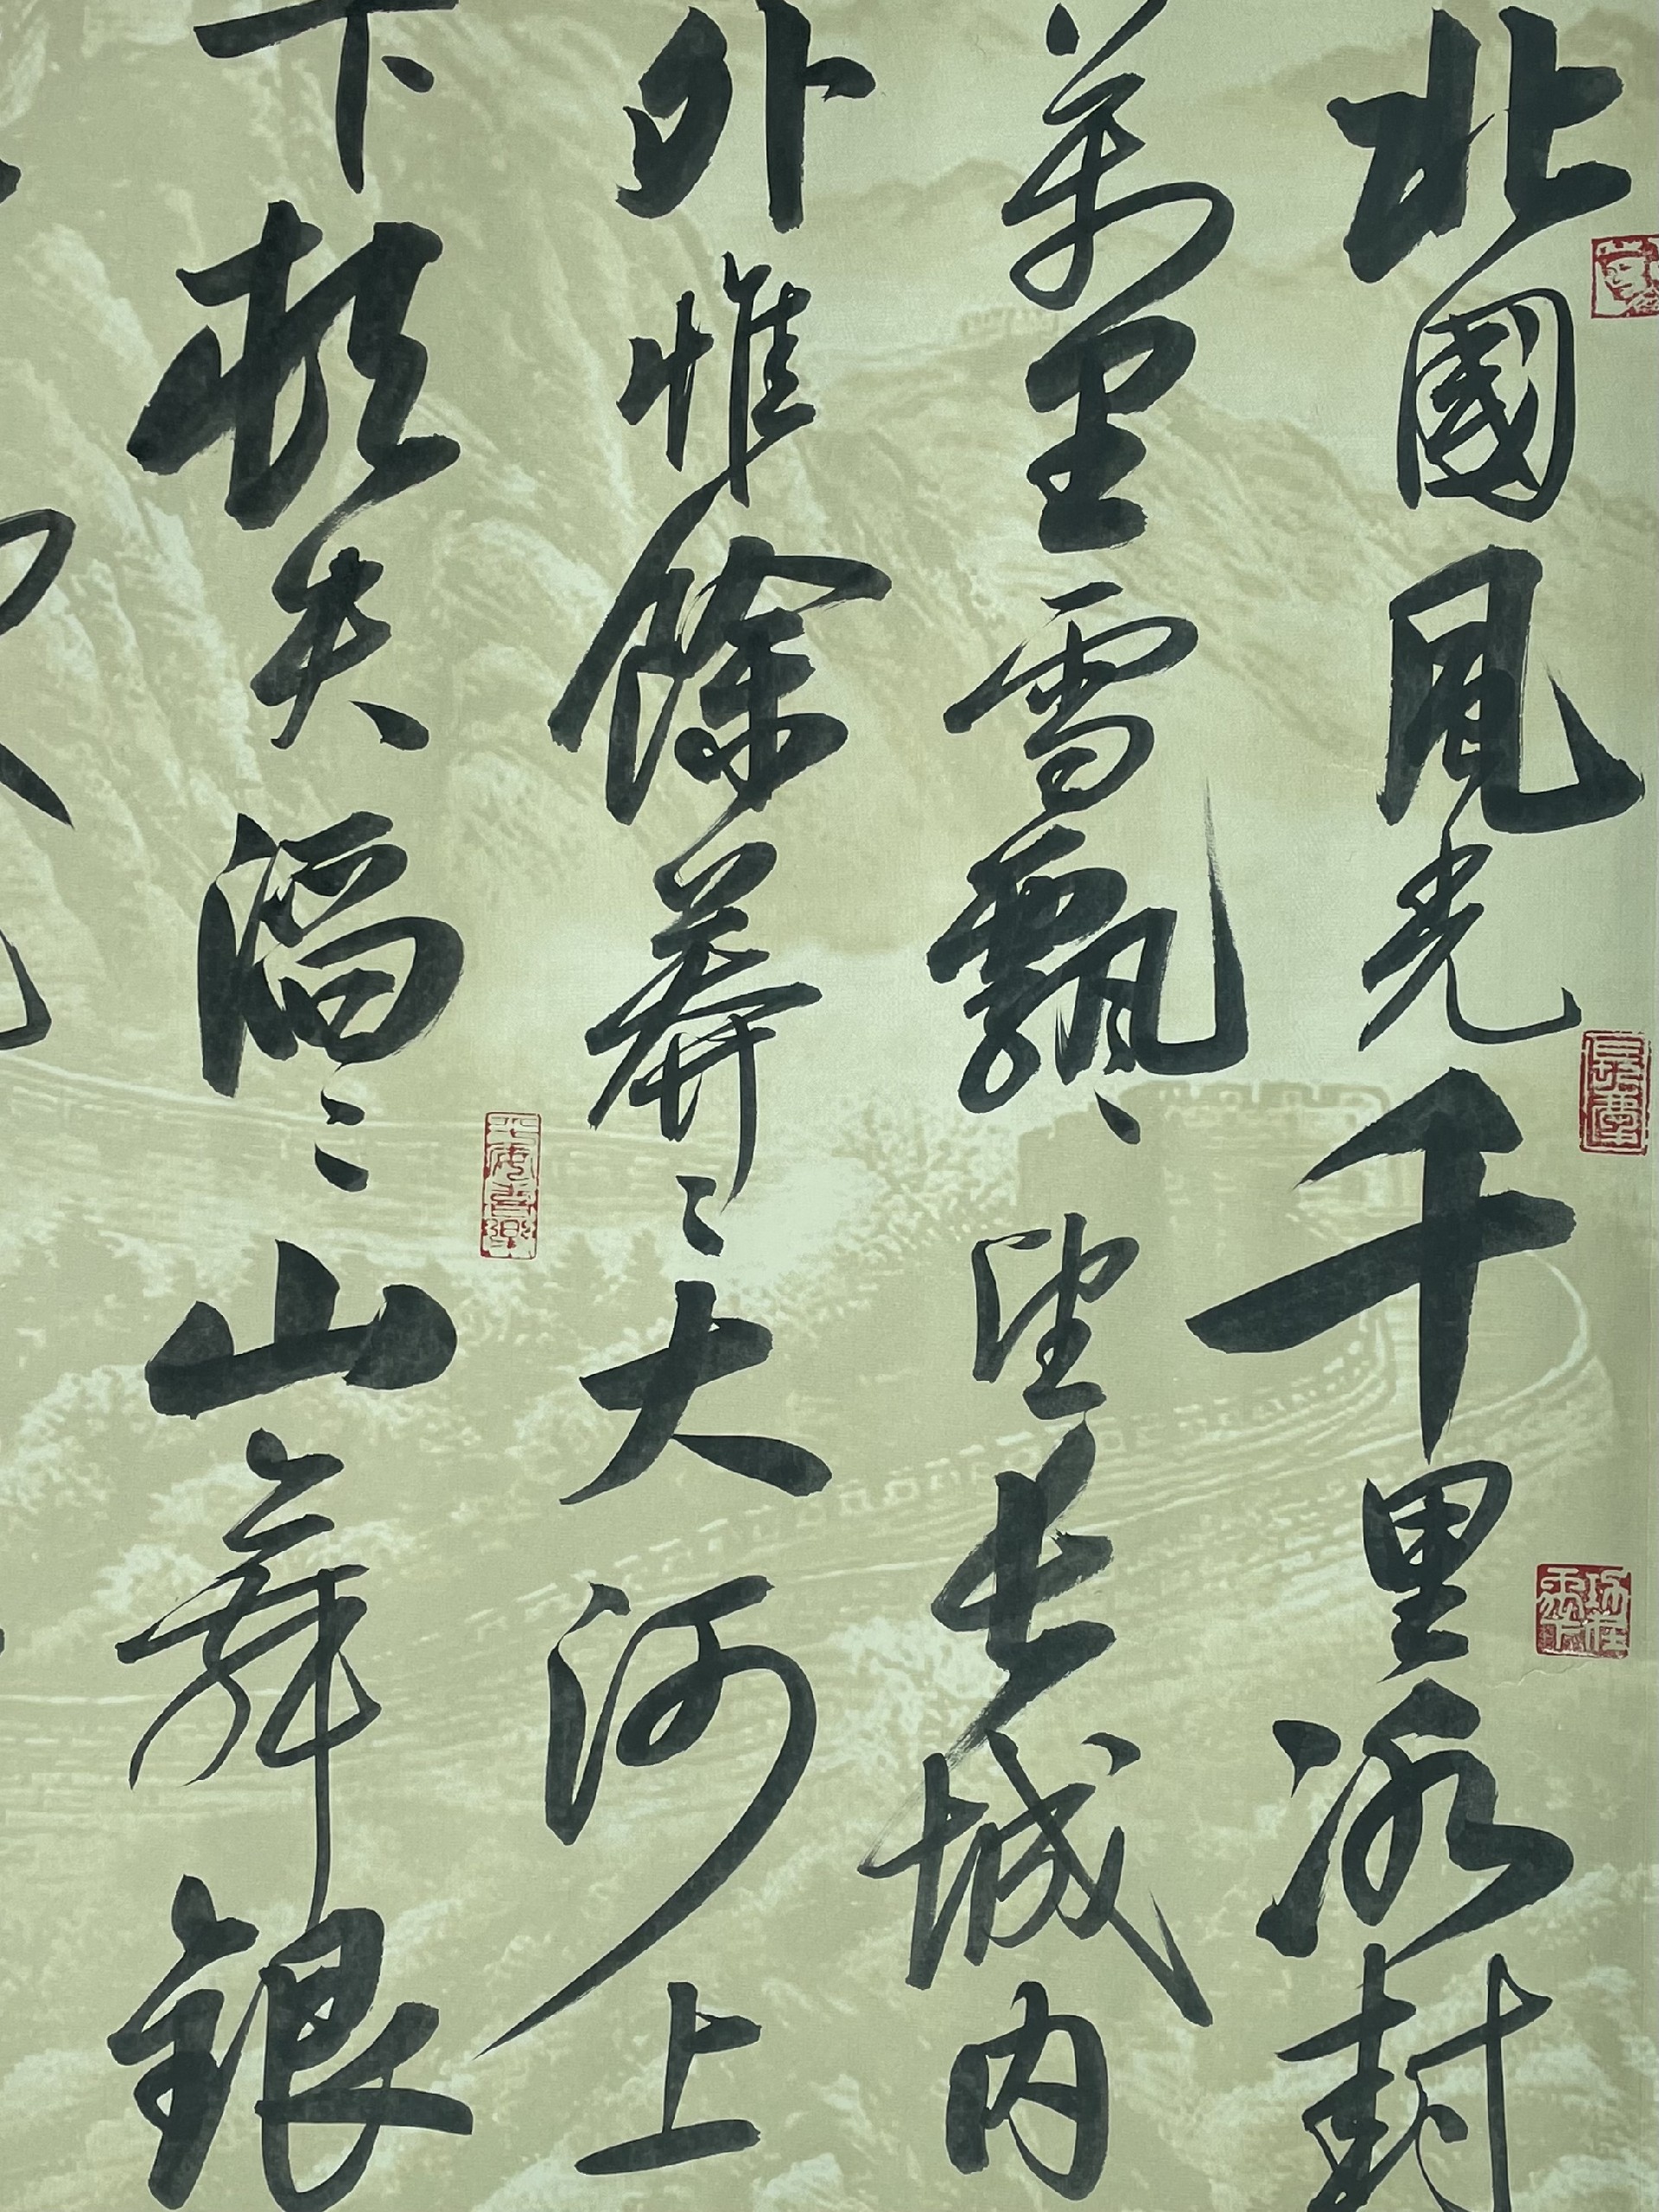 北國風光千里冰封
萬里雪飄望長城內
外惟餘莽〻大河上
下頓失滔〻山舞銀